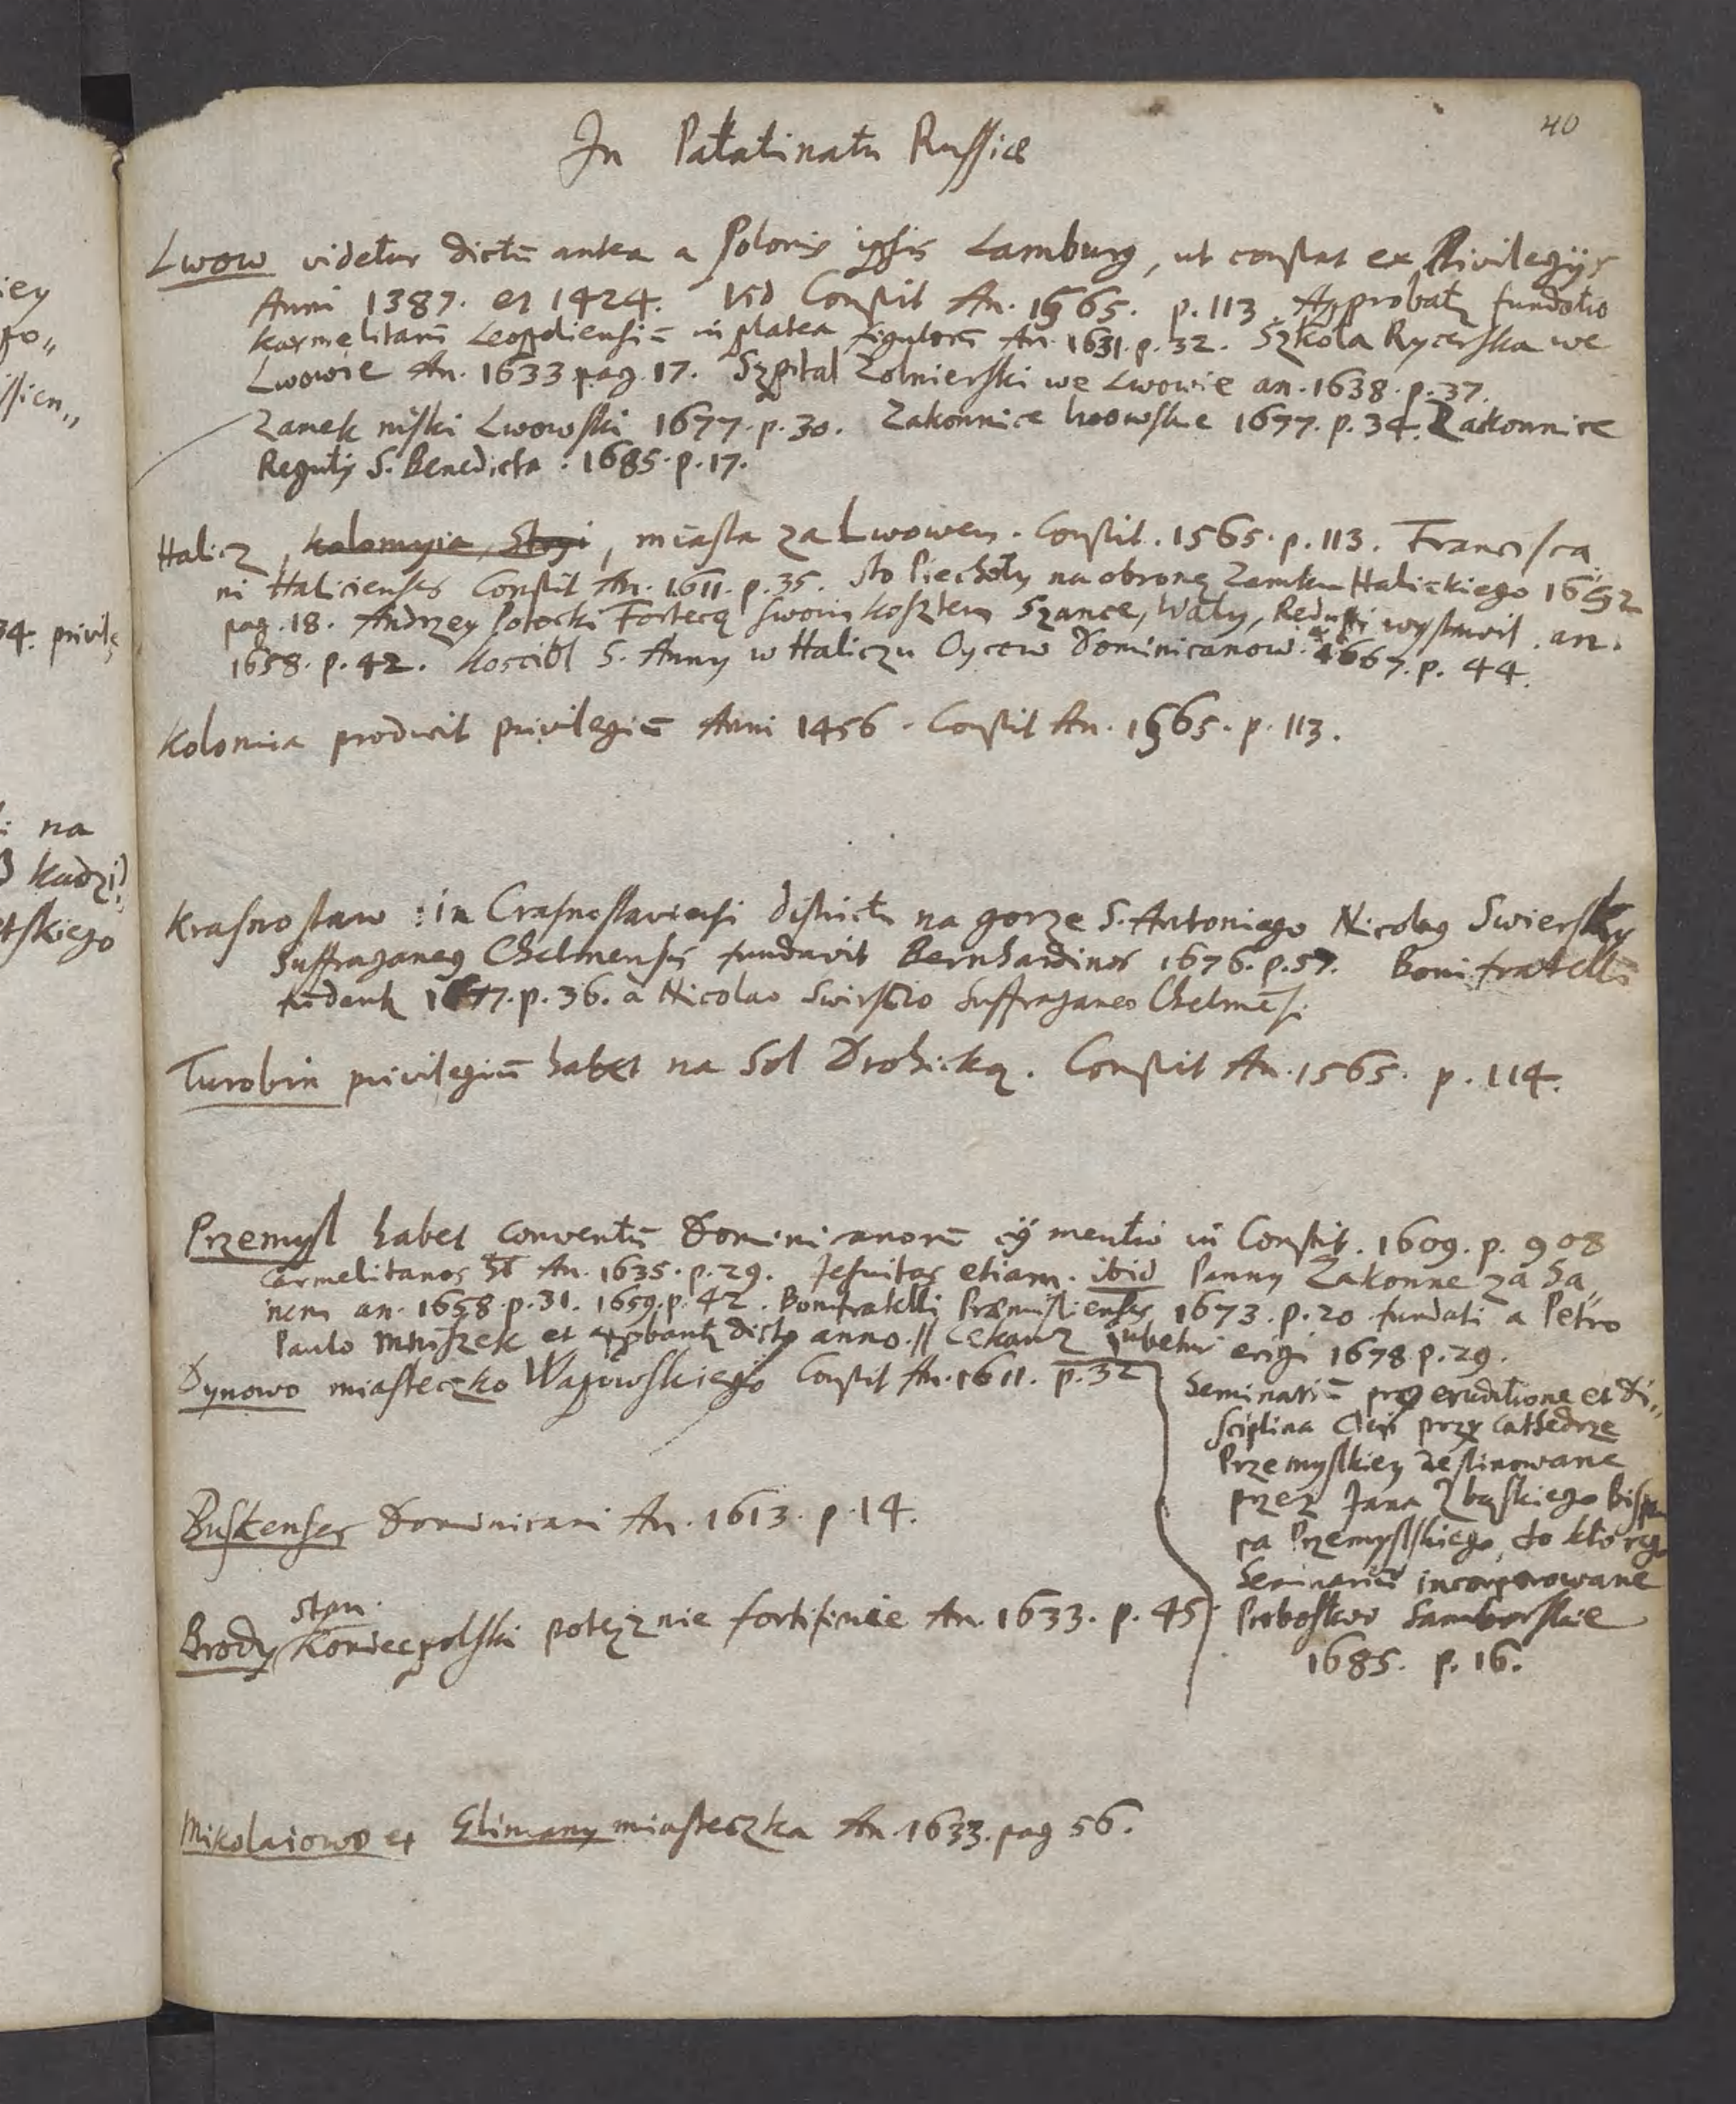 40
In Palatinatu Russiæ
Lwow videtur dictū antea a Polonis ipsis Lamburg, ut constat ex Privilegijs
Anni 1387. et 1424. Vid Constit An. 1565. p. 113. Approbatʒ fundatio
Karmelitarū Leopoliensiū in platea figulorū An. 1631. p. 32. Szkoła Rycerska we
Lwowie An. 1633 pag. 17. Szpital Zolnierski we Lwowie an. 1638. p. 37.
Zamek niski Lwowski 1677. p. 30. Zakonnice lwowskie 1677. p. 34. Zakonnice
Reguły S. Benedicta : 1685. p. 17.
Halicz, Kolomyia, , miasta za Lwowem. Constit. 1565. p. 113. Francisca„
ni Halicienses Constit An. 1611. p. 35. sto Piechoty na obronę Zamku Halickiego
pag. 18. Andrzey Potocki Fortecą swoim kosztem Szance, Wały, Reduty wystawił. an.
1658. p. 42. Kosciół S. Anny w Haliczu Oycow Dominicanow. 1667. p. 44.
Kolomia producit privilegiū Anni 1456. Constit An. 1565. p. 113.
Krasnostaw : in Crasnostaviensi districtu na gorze S. Antoniego Nicolaus Swiersky
Suffraganeus Chelmensis fundavit Bernhardinos 1676. p. 57. Boni fratelli
fūdantʒ 1677. p. 36. a Nicolao Swirscio Suffraganeo Chelmēs.
Turobin privilegiū habet na Sol Drohicką. Constit An. 1565. p. 114.
Przemysl habet conventū Dominicanorū cuj mentio in Constit. 1609. p. 908
Carmelitanos An. 1635. p. 29. Jesuitas etiam. ibid Panny Zakonne za Sa„
nem an. 1658. p. 31. 1659. p. 42. Bonifratelli Præmislienses 1673. p. 20 fundati a Petro
Paulo Mniszek et appbantʒ dicto anno. // Cekauz jubetur erigi 1678 p. 29.
Dynowo miasteczko Wapowskiego Constit An. 1611. p. 32
Seminariū pro eruditione et di„
sciplina Cleri przy Cathedrze
Przemyslkiey destinowane
przez Jana Zbąskiego Bisku
pa Przemyslskiego, do ktorego
Seminariū incorporowane
Probostwo Samborskie
1685. p. 16.
Buskenses Dominicani An. 1613. p. 14.
Stan.
Brody Koniecpolski potężnie fortifikuie An. 1633. p. 45.
Mikolaiowo et Glimany miasteczka An. 1633. pag 56.
iey
po„
ssien„
34. privile
: na
Kudzi)
tskiego